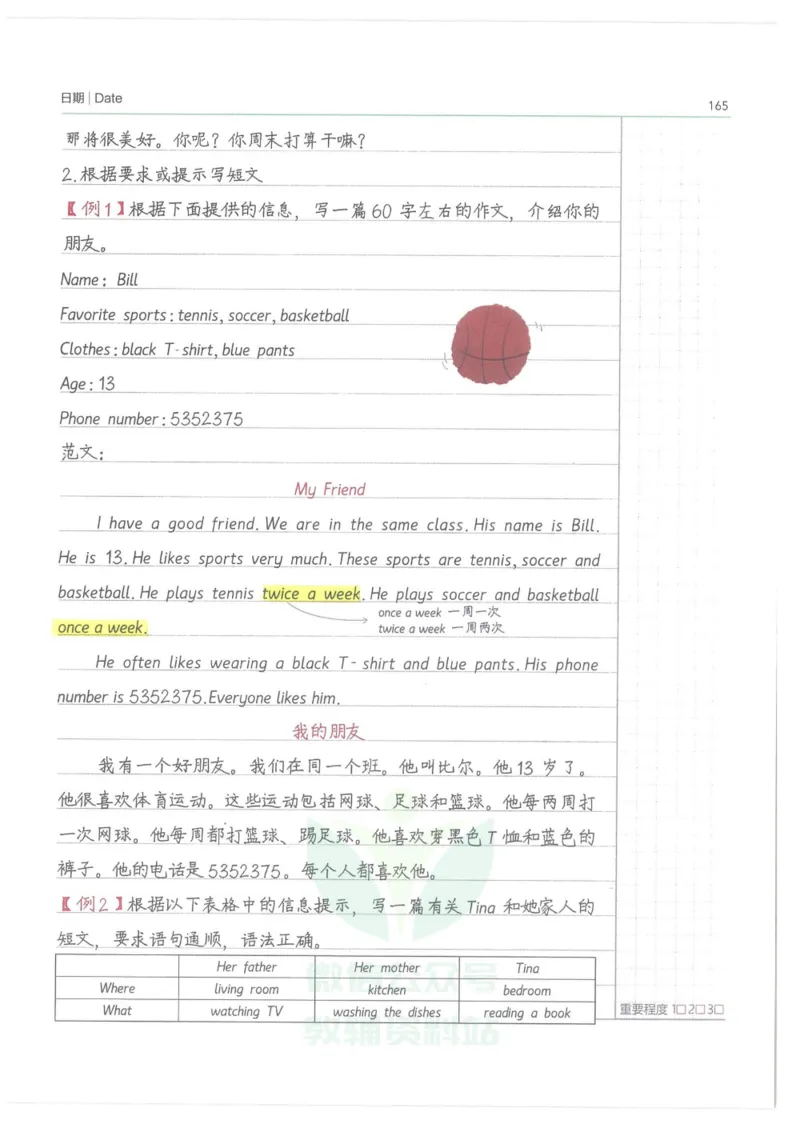 日期 | Date
165
那将很美好。你呢？你周末打算干嘛？
2.根据要求或提示写短文
【例1】根据下面提供的信息，写一篇60字左右的作文，介绍你的
朋友。
Name: Bill
Favorite sports: tennis, soccer, basketball
Clothes: black T-shirt, blue pants
Age: 13
Phone number: 5352375
范文：
My Friend
I have a good friend. We are in the same class. His name is Bill.
He is 13. He likes sports very much. These sports are tennis, soccer and
basketball. He plays tennis twice a week. He plays soccer and basketball
once a week 一周一次
once a week.
twice a week 一周两次
He often likes wearing a black T-shirt and blue pants. His phone
number is 5352375. Everyone likes him.
我的朋友
我有一个好朋友。我们在同一个班。他叫比尔。他13岁了。
他很喜欢体育运动。这些运动包括网球、足球和篮球。他每两周打
一次网球。他每周都打篮球、踢足球。他喜欢穿黑色T恤和蓝色的
裤子。他的电话是5352375。每个人都喜欢他。
【例2】根据以下表格中的信息提示，写一篇有关Tina和她家人的
短文，要求语句通顺，语法正确。
Her father Her mother Tina
Where living room kitchen bedroom
What watching TV washing the dishes reading a book
重要程度 1□ 2□ 3□
微信公众号
教辅资料站